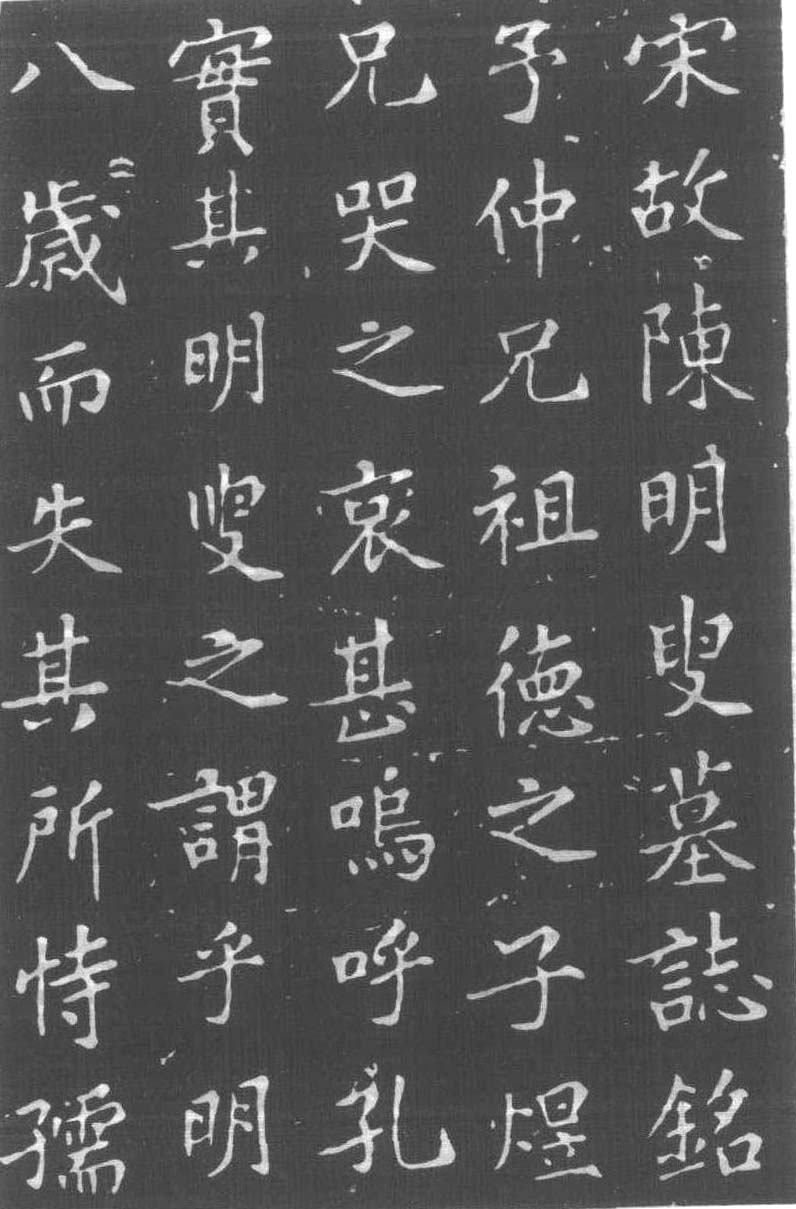 宋故陳明叟墓誌銘
予仲兄祖德之子煜
兄哭之哀甚嗚呼孔
實其明叟之謂乎明
八歲而失其所恃孺